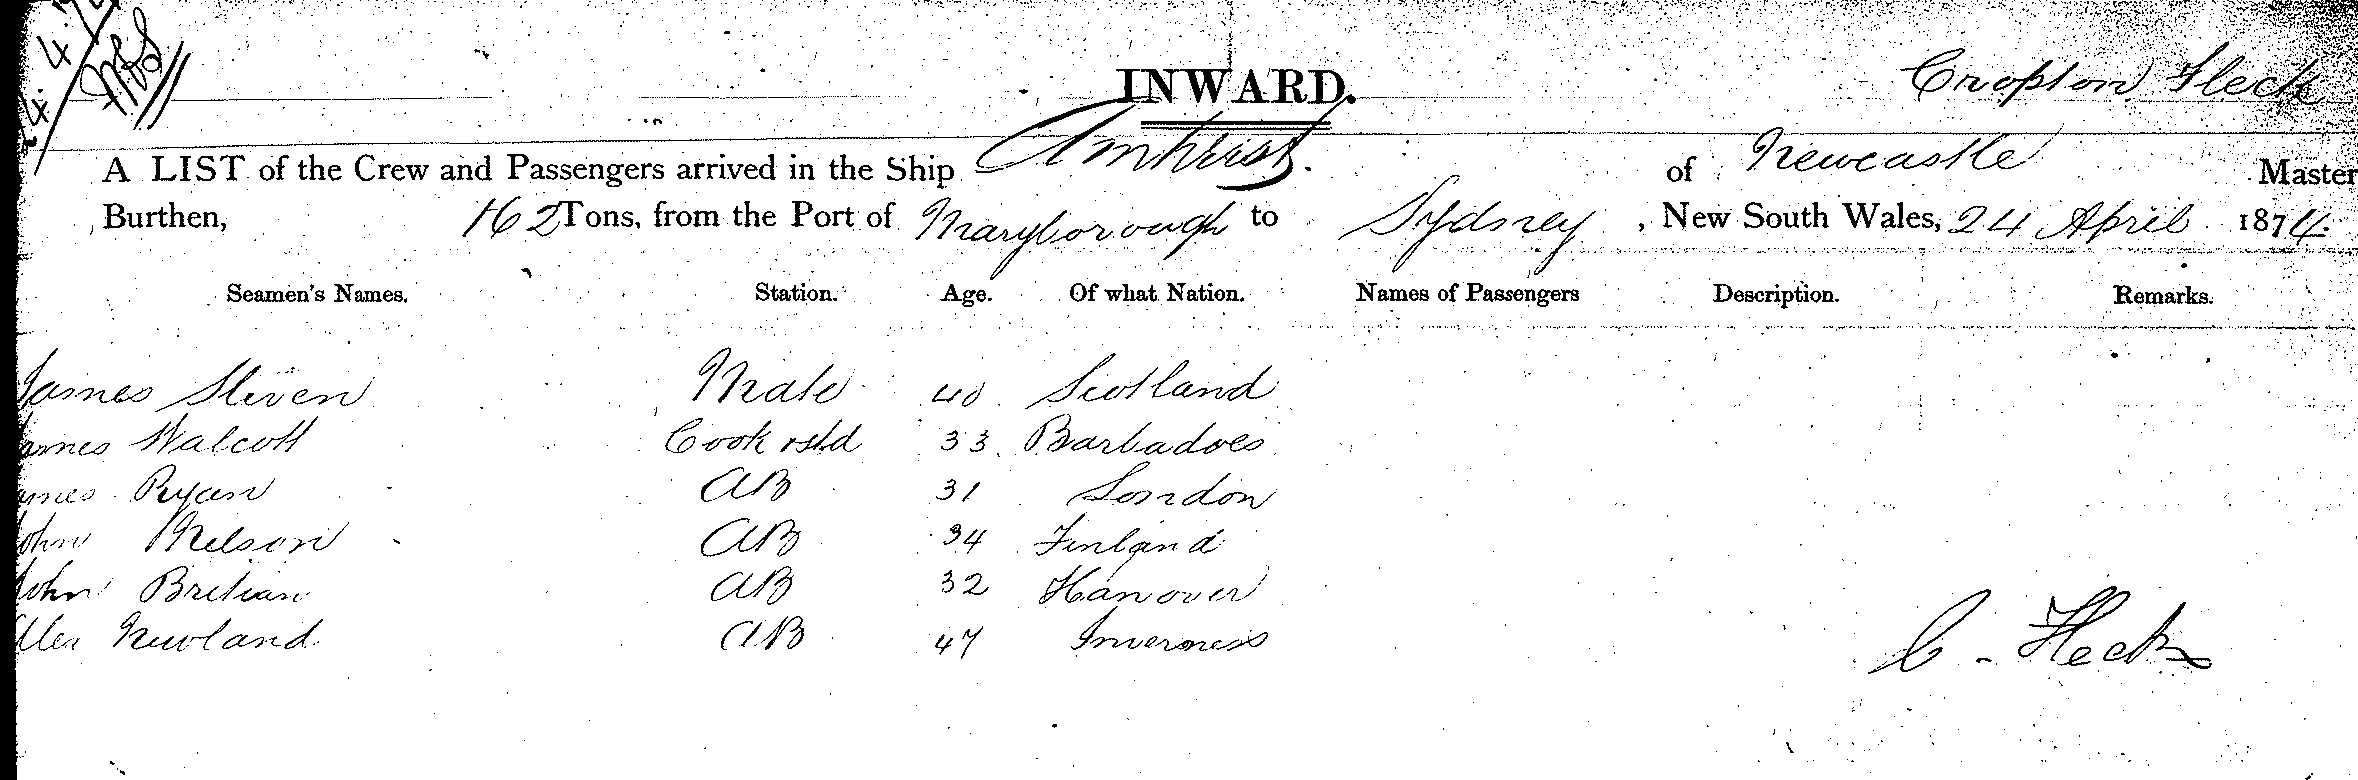 24.4.
INWARD.
Cropton Fleck
A LIST of the Crew and Passengers arrived in the Ship Amherst. of Newcastle Master
Burthen, 162 Tons, from the Port of Maryborough to Sydney, New South Wales, 24 April 1874.
Seamen's Names. Station. Age. Of what Nation. Names of Passengers Description. Remarks.
James Sliven Mate 40 Scotland
James Walcott Cook & std 33 Barbadoes
James Ryan AB 31 London
John Nelson AB 34 Finland
John Britian AB 32 Hanover
Alex Newland AB 47 Inverness
C. Fleck